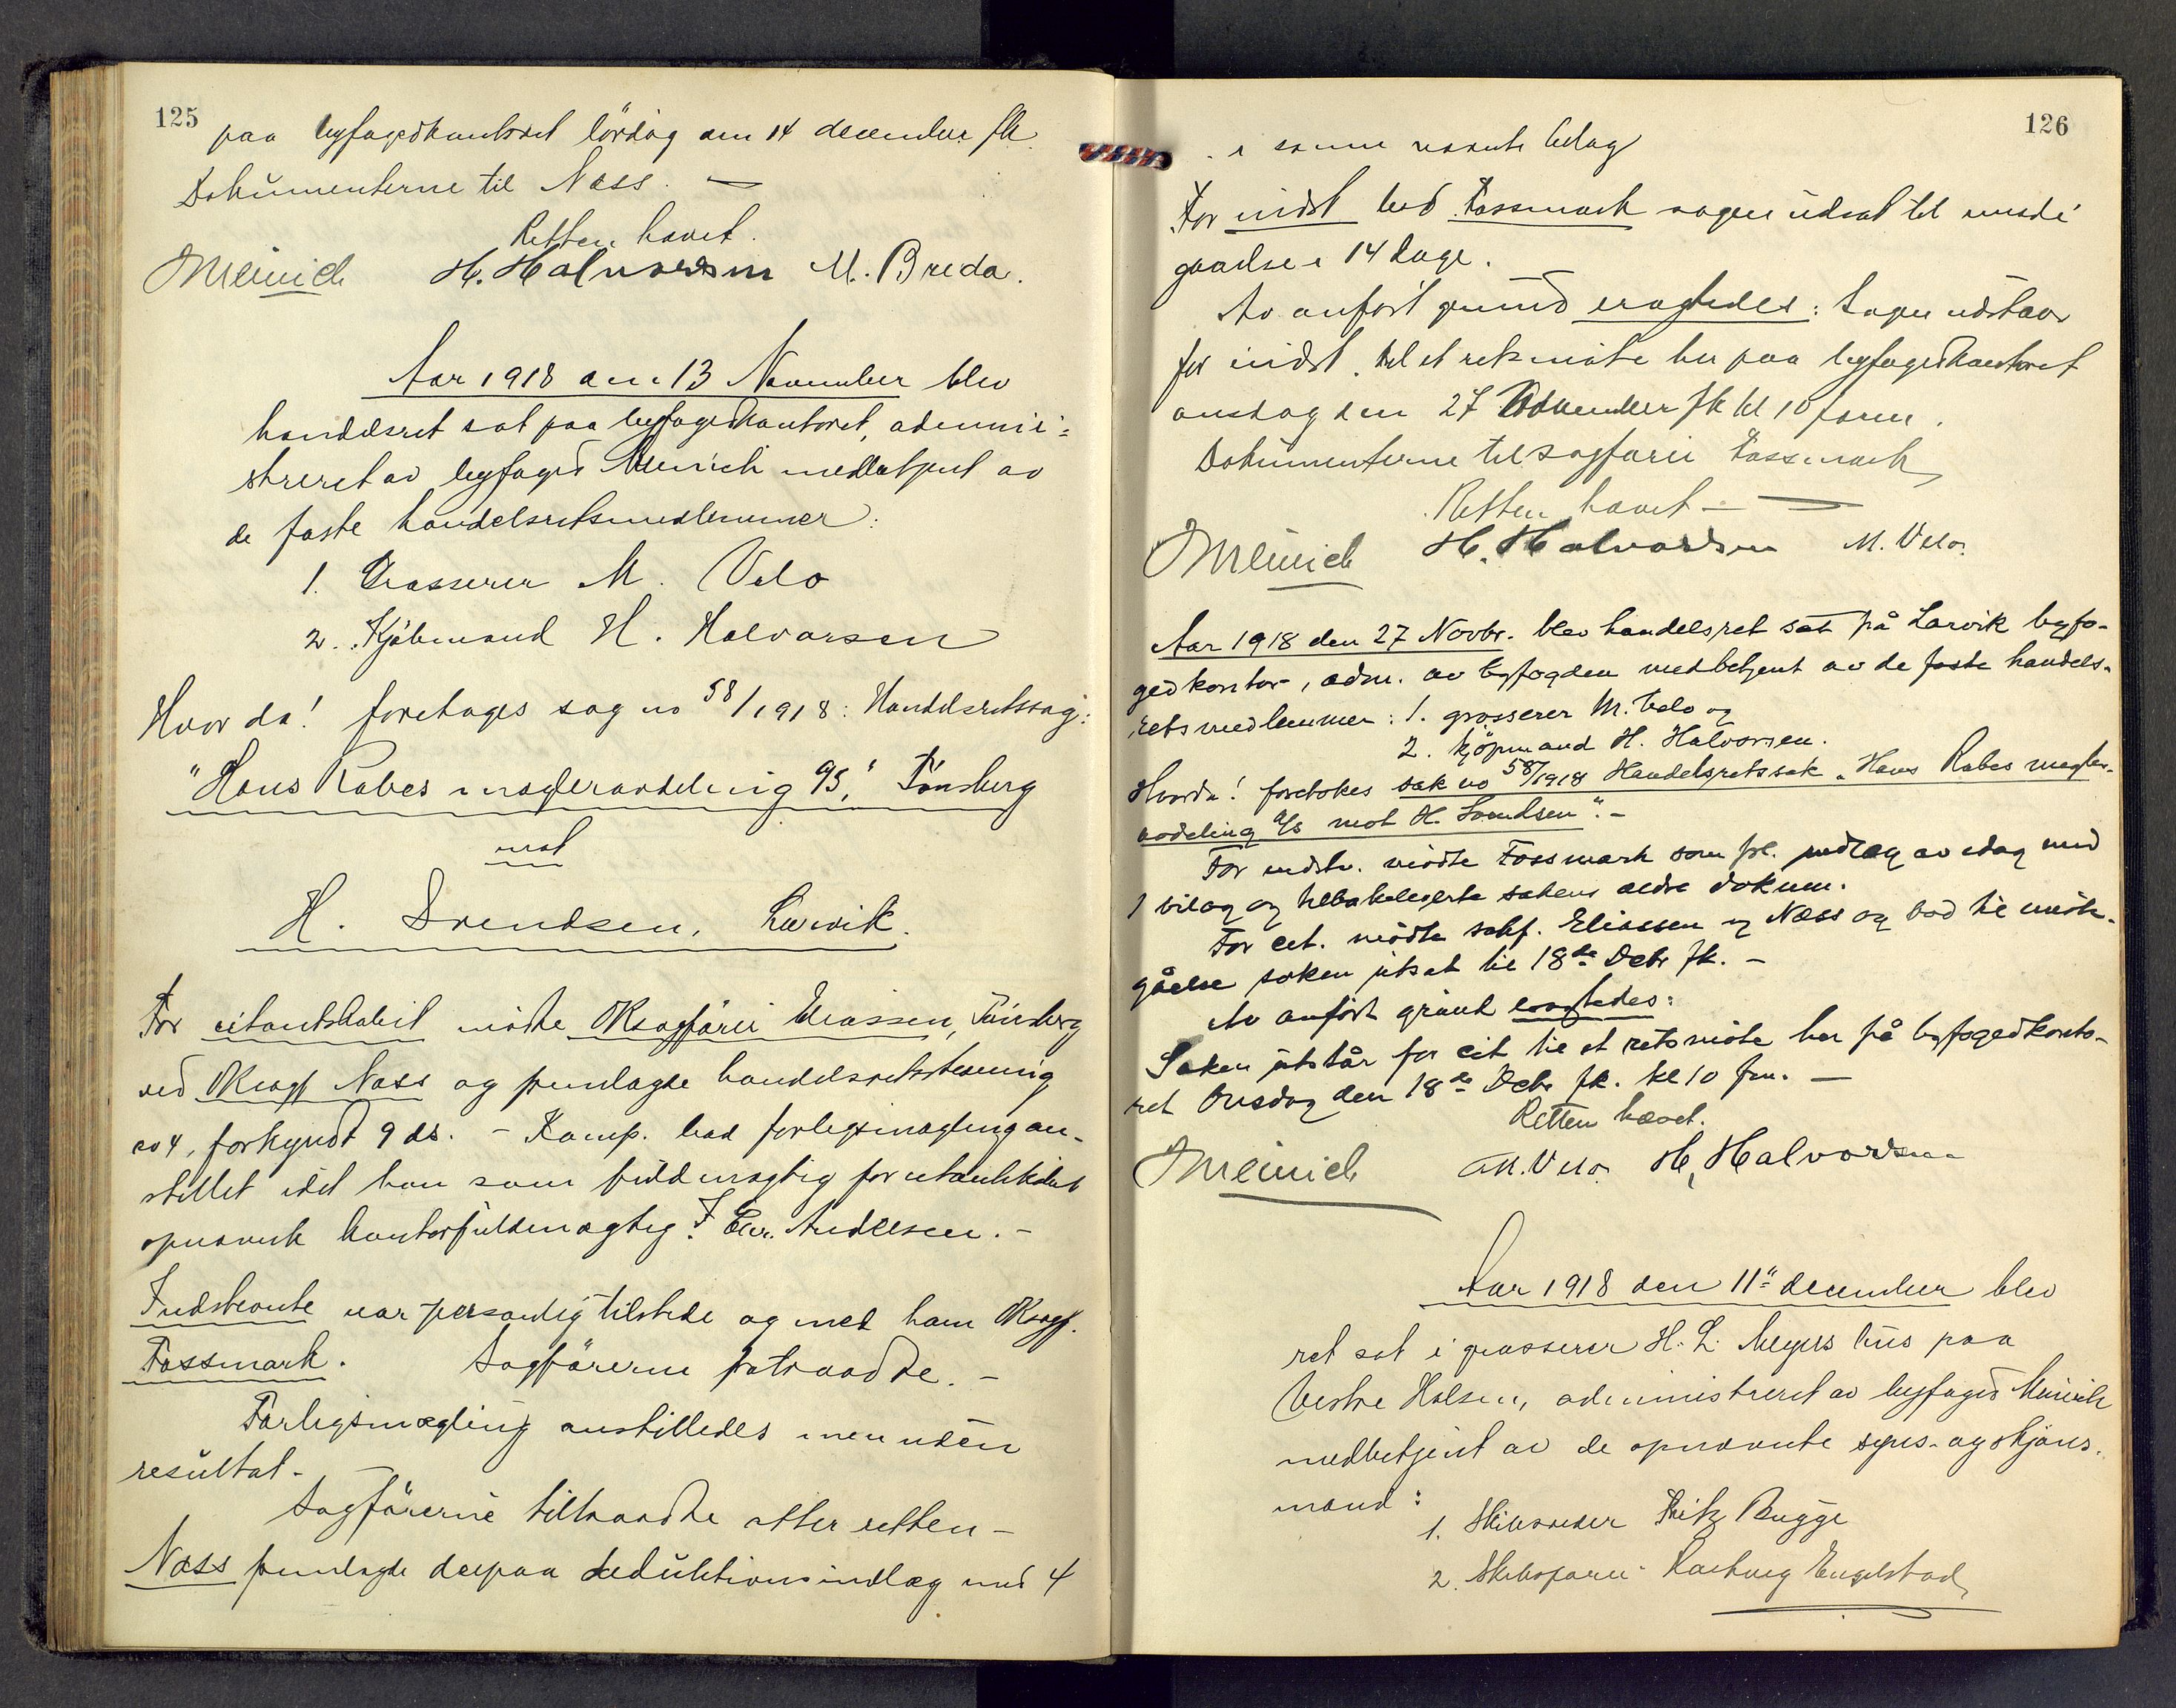 125
paa byfogedkontoret lördag den 14 december fk.
Dokumenterne til Næss. —
Retten hævet.
Meinich H. Halvorsen M. Breda.
Aar 1918 den 13 November blev
handelsret sat paa byfogedkontoret, admini=
streret av byfoged Meinich medbetjent av
de faste handelsretsmedlemmer:
1. Grosserer M. Velo
2. Kjöbmand H. Halvorsen
Hvor da! foretages sag no 58/1918: Handelsretssag:
"Hans Rabes mægleravdeling A/S," Tönsberg
mot
H. Svendsen, Larvik.
For citantskabet mödte OKsagförer Eliassen, Tönsberg
ved OKsagf Næss og fremlagde handelsretsstevning
no 4, forkyndt 9 ds. - Komp. bad forligsmægling an-
stillet idet han som fuldmægtig for citantskabet
opnævnte kontorfuldmægtig Chr. Andersen. -
Indstevnte var personlig tilstede og med ham OKsagf.
Fossmark. Sagförerne fratraadte. -
Forligsmægling anstilledes men uden
resultat. -
Sagförerne tiltraadte atter retten -
Næss fremlagde derpaa deduktionsindlæg med 4
126
i samme nævnte bilag
For indst bad Fossmark sagen udsat til imøde
gaaelse i 14 dage.
Av anfört grund eragtedes: Sagen udstaar
for indst. til et retsmöte her paa byfogedkontoret
onsdag den 27 November fk kl 10 form.
Dokumenterne til sagförer Fossmark
Retten hævet —
Meinich H. Halvorsen M. Velo.
Aar 1918 den 27 Novbr. blev handelsret sat på Larvik byfo-
gedkontor, adm. av byfogden medbetjent av de faste handels-
retsmedlemmer: 1. grosserer M. Velo og
2. kjöpmand H. Halvorsen.
Hvorda! foretokes sak no 58/1918 Handelsretssak „Hans Rabes megler-
avdeling A/S mot H. Svendsen". -
For indstv. mödte Fossmark som frl. indlæg av idag med
1 bilag og tilbakeleverte sakens ældre dokum.
For cit. mödte sakf. Eliassen v Næss og bad til imöte-
gåelse saken utsat til 18de Debr fk. -
Av anfört grund eragtedes:
Saken utstår for cit til et retsmöte her på byfogedkonto-
ret Onsdag den 18de Debr fk. kl 10 fm. —
Retten hævet.
Meinich M. Velo. H. Halvorsen
Aar 1918 den 11te december blev
ret sat i grosserer H. L. Meyers hus paa
Vestre Halsen, administreret av byfoged Meinich
medbetjent av de opnævnte syns- og skjöns-
mænd:
1. Skibsreder Fritz Bugge
2. Skibsförer Engelstad